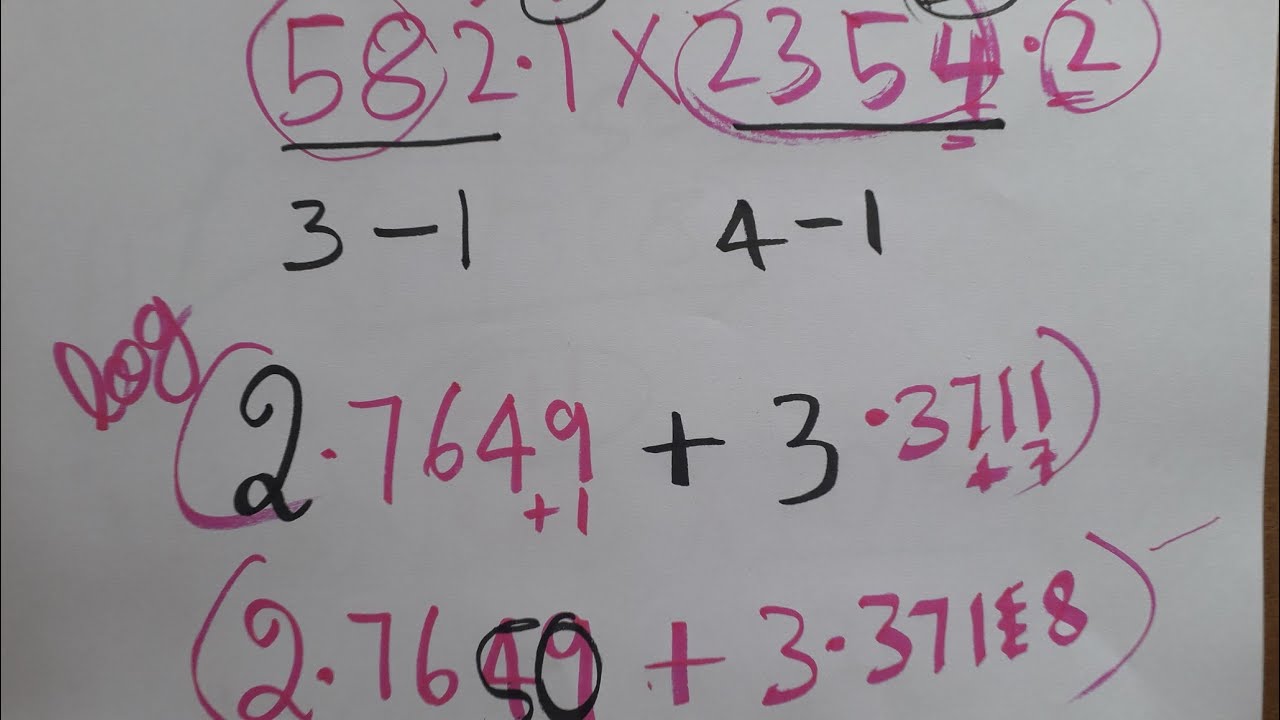 582.1 × 2354.2
3-1 4-1
log (2.7649 + 3.3711)
+1 +7
(2.7650 + 3.3718)